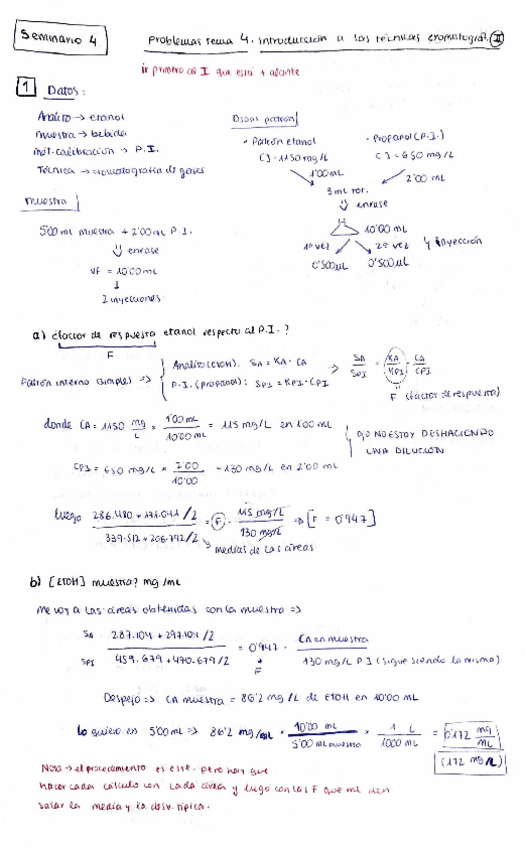 Seminario 4
Problemas tema 4. Introducción a las técnicas cromatográf. II
ir primero a I que está + adelante
1 Datos:
Analito → etanol
Muestra → bebida
Mét. calibración → P.I.
Técnica → cromatografía de gases
Dison patrón
• Patrón etanol
C] = 1150 mg/L
• Propanol (P.I.)
C] = 650 mg/L
1'00 mL
2'00 mL
3 mL tot.
⇓ enrase
10'00 mL
1ª vez
2ª vez
inyección
0'500 µL
0'500 µL
Muestra
5'00 mL muestra + 2'00 mL P.I.
⇓ enrase
VF = 10'00 mL
↓
2 inyecciones
a) ¿factor de respuesta etanol respecto al P.I.?
F
Patrón interno (simple) ⇒
Analito (EtOH): SA = KA · CA
P.I. (propanol): SPI = KPI · CPI
→ SA/SPI = KA/KPI · CA/CPI
F (factor de respuesta)
donde CA = 1150 mg/L × 1'00 mL/10'00 mL = 115 mg/L en 1'00 mL
CPI = 650 mg/L × 2'00/10'00 = 130 mg/L en 2'00 mL
NO ESTOY DESHACIENDO
UNA DILUCIÓN
luego
/2
= F · 115 mg/L / 130 mg/L ⇒ [F = 0'947]
/2
medias de las áreas
b) [EtOH] muestra? mg/mL
Me voy a las áreas obtenidas con la muestra ⇒
SA
/2
SPI
459.679 + 470.679/2
= 0'947 ·
F
CA en muestra
130 mg/L P.I (sigue siendo la misma)
Despejo ⇒ CA muestra = 86'2 mg/L de EtOH en 10'00 mL
Lo quiero en 5'00 mL ⇒ 86'2 × 10'00 mL/5'00 mL muestra × 1 L/1000 mL = 0'172 mg/mL
(172 mg/L)
Nota → el procedimiento es este. pero hay que
hacer cada cálculo con cada área y luego con las F que me den
sacar la media y la desv. típica.